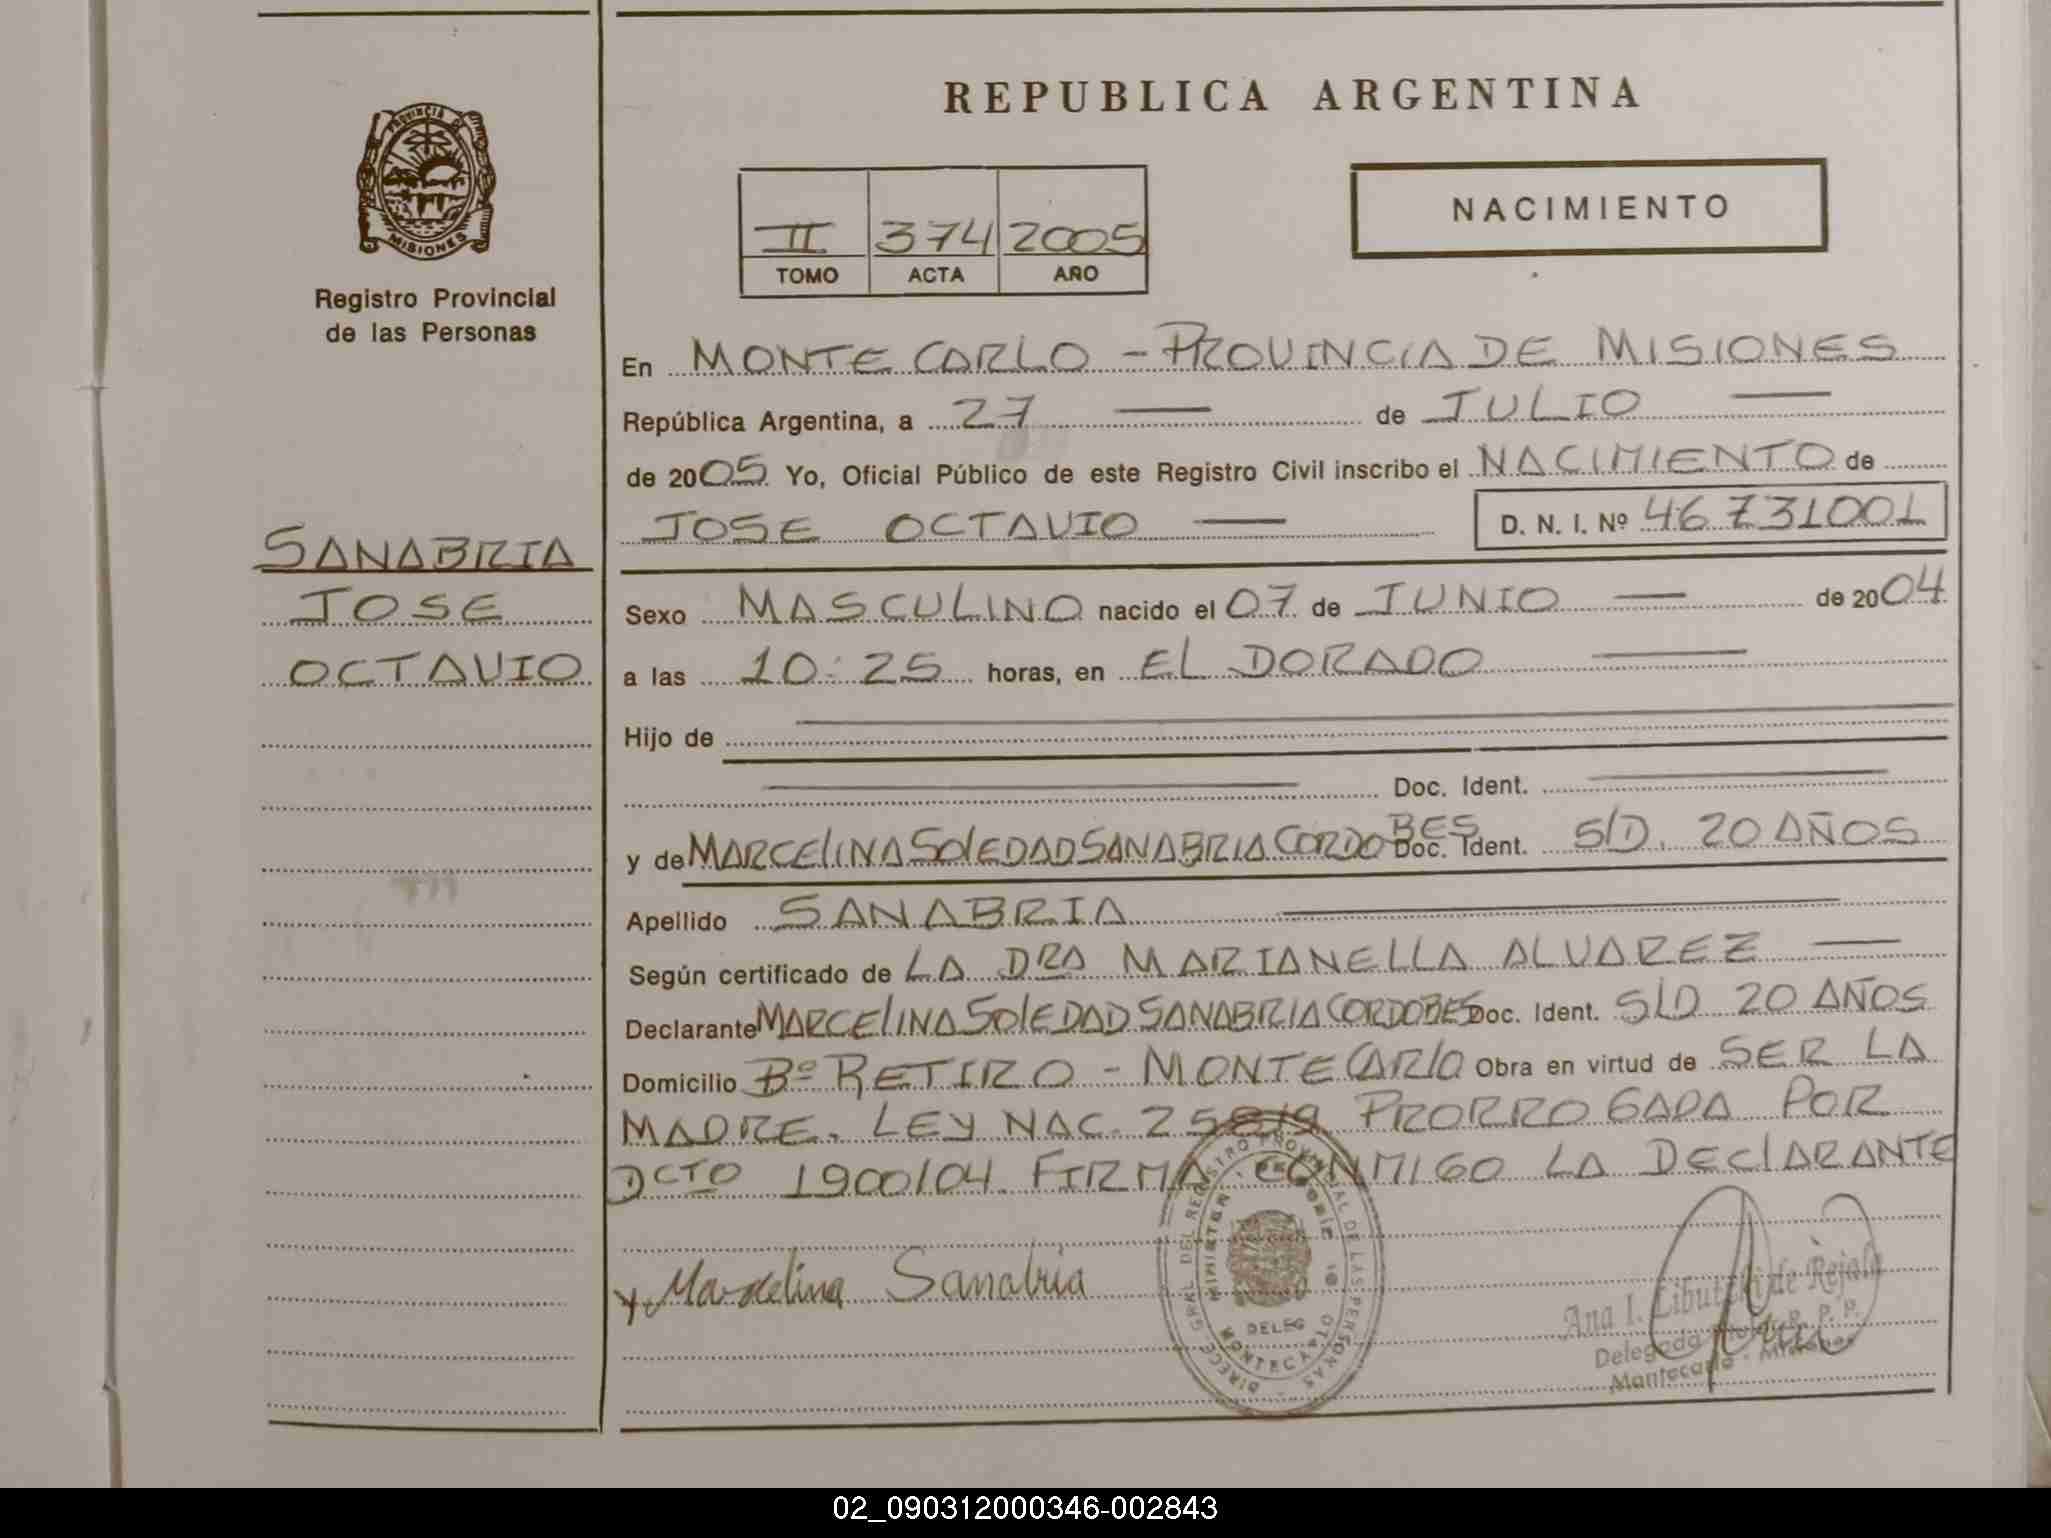 REPUBLICA ARGENTINA
PROVINCIA DE
MISIONES
Registro Provincial
de las Personas
II 374 2005
TOMO ACTA AÑO
NACIMIENTO
En MONTECARLO - PROVINCIA DE MISIONES
República Argentina, a 27 — de JULIO —
de 2005 Yo, Oficial Público de este Registro Civil inscribo el NACIMIENTO de
JOSE OCTAVIO — D. N. I. Nº 46731001
SANABRIA
JOSE
OCTAVIO
Sexo MASCULINO nacido el 07 de JUNIO — de 2004
a las 10:25 horas, en EL DORADO —
Hijo de —
— Doc. Ident. —
y de MARCELINA SOLEDAD SANABRIA CORDOBES Doc. Ident. S/D. 20 AÑOS
Apellido SANABRIA —
Según certificado de LA DRA MARIANELLA ALVAREZ —
Declarante MARCELINA SOLEDAD SANABRIA CORDOBES Doc. Ident. S/D 20 AÑOS
Domicilio Bº RETIRO - MONTECARLO Obra en virtud de SER LA
MADRE. LEY NAC. 25819 PRORROGADA POR
DCTO 1900/04 FIRMA CONMIGO LA DECLARANTE
Marcelina Sanabria
DIREC. GRAL. DEL REGISTRO PROVINCIAL DE LAS PERSONAS
DELEG
MONTECARLO
Ana I. de Rejala
Delegada R. P. P.
Montecarlo - Misiones
02_090312000346-002843